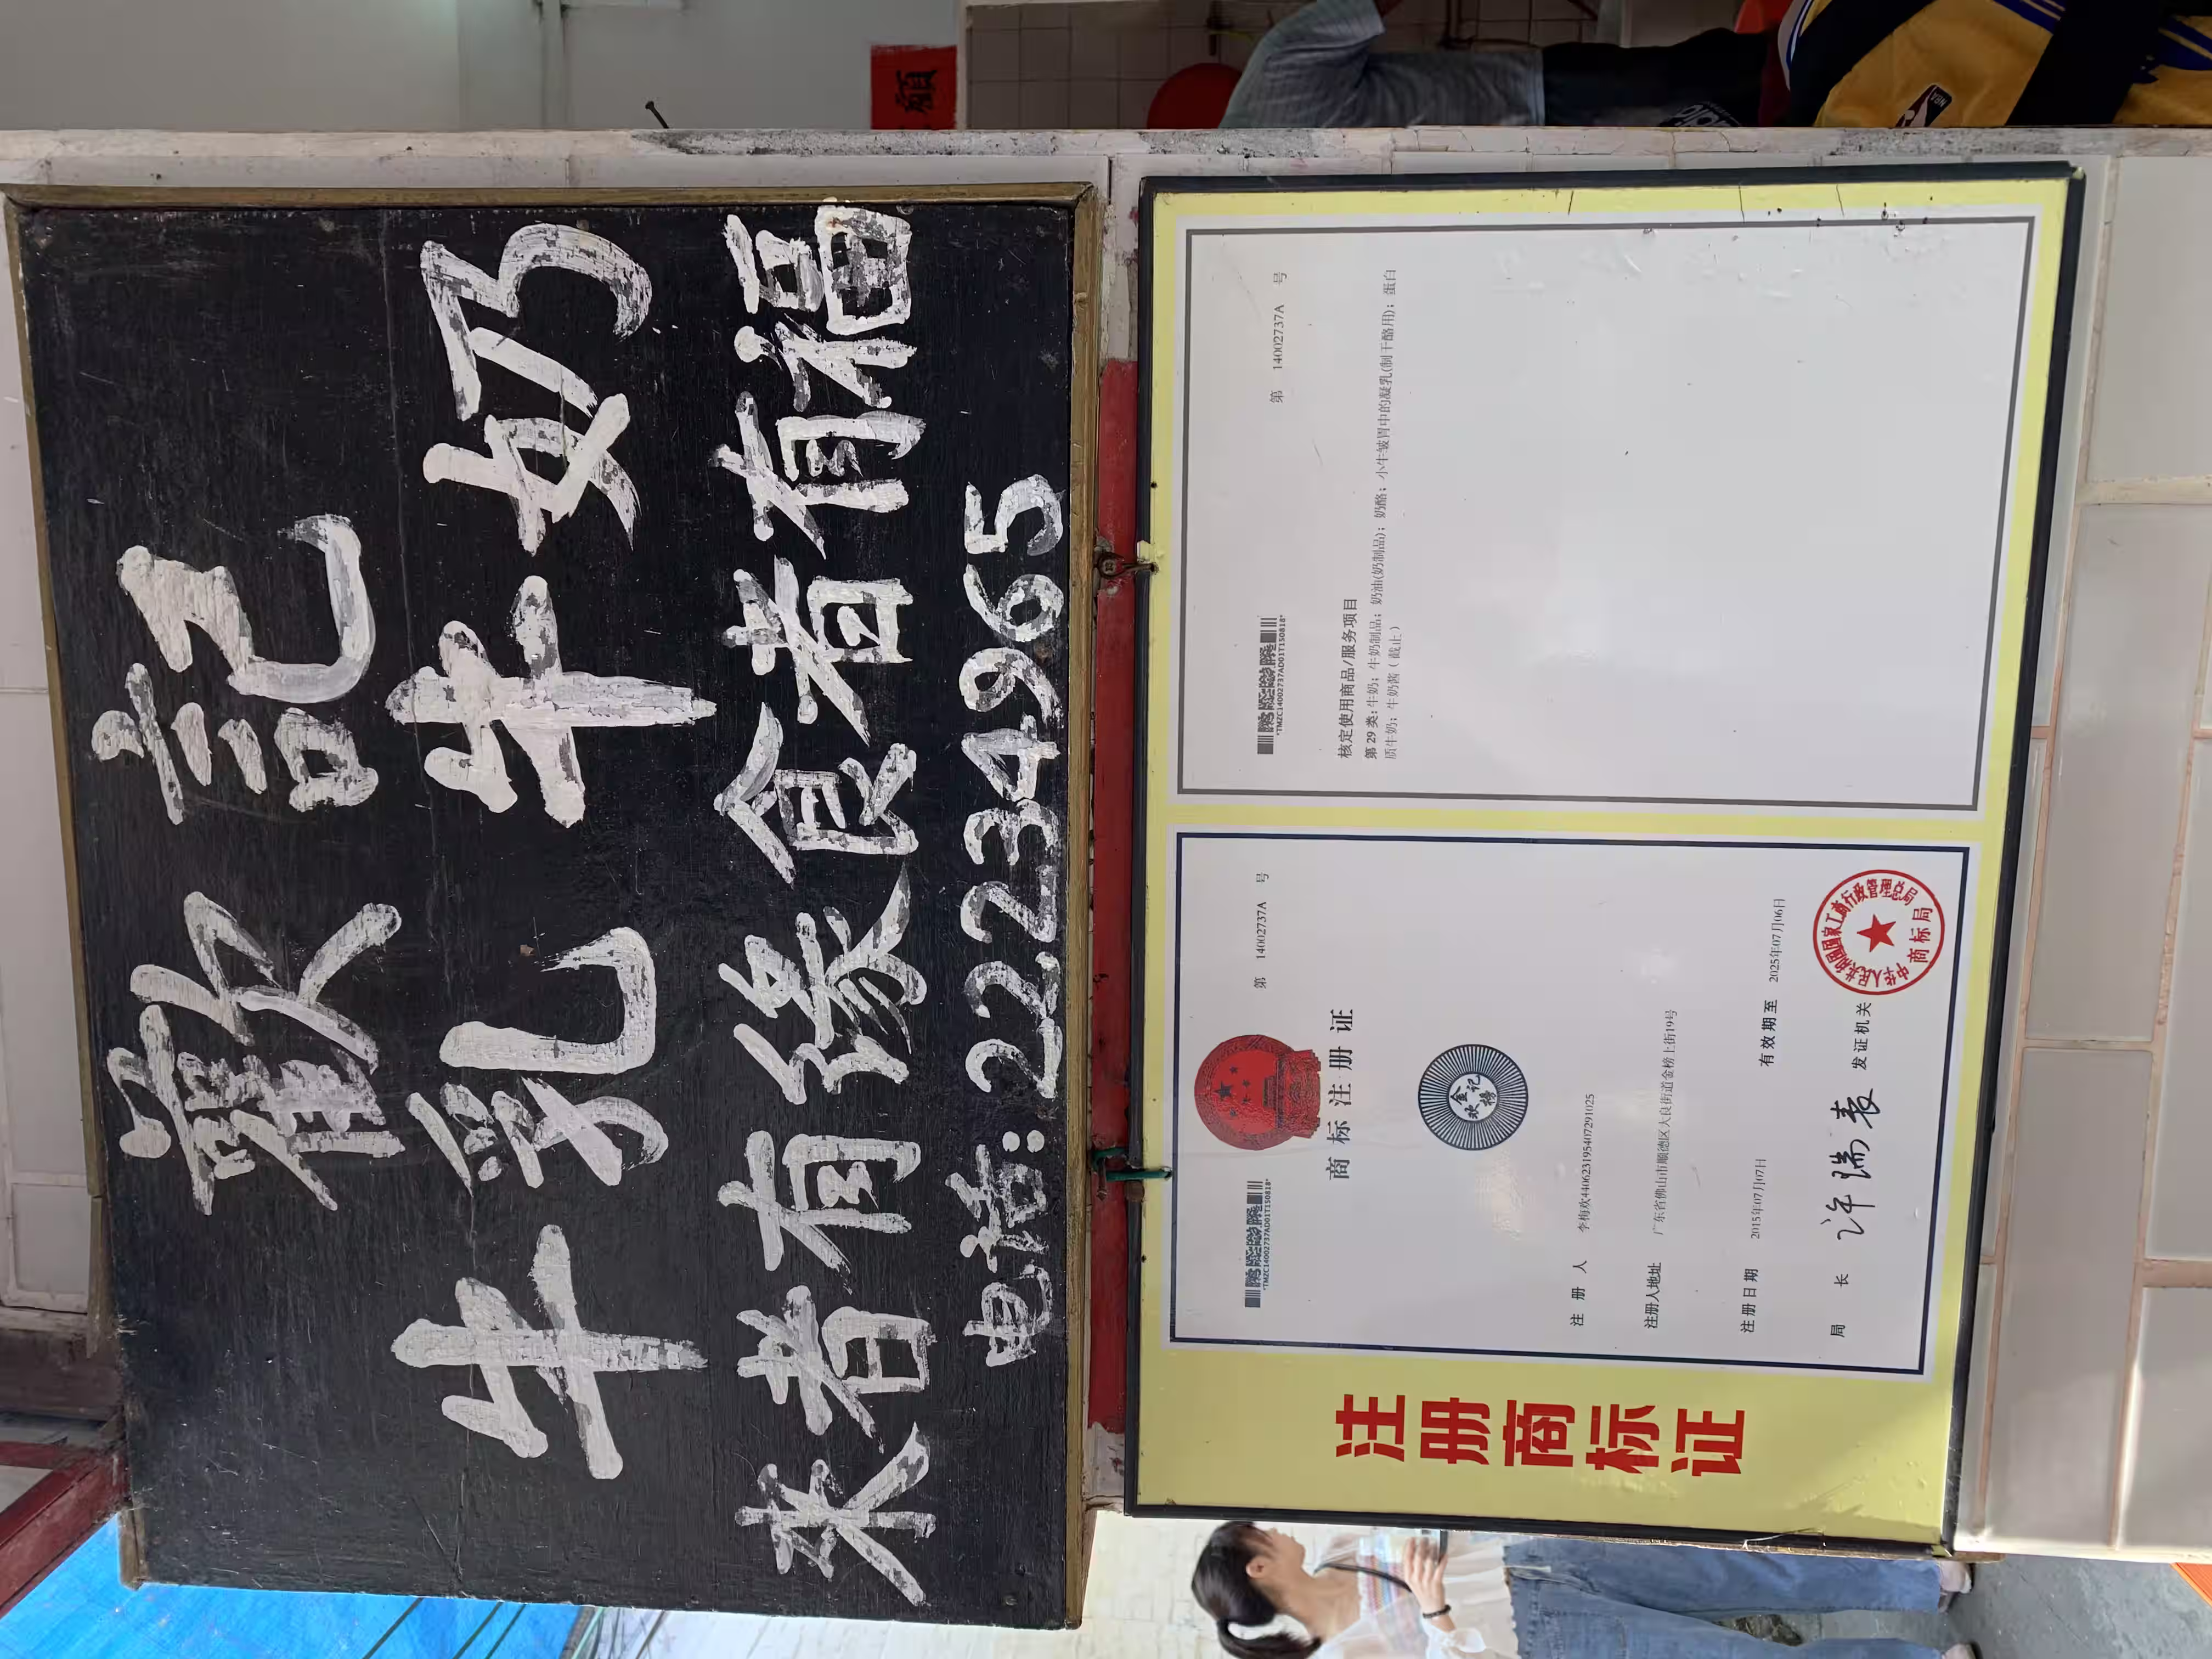 歡記
牛乳牛奶
來者有緣食者有福
电话:22234965
注册商标证
*TMZC14002737AD01T150818*
第 14002737A 号
商标注册证
金榜
欢记
注册人 李梅欢440623195407291025
注册人地址 广东省佛山市顺德区大良街道金榜上街19号
注册日期 2015年07月07日 有效期至 2025年07月06日
局长 许瑞表 发证机关
中华人民共和国国家工商行政管理总局
商标局
*TMZC14002737AD01T150818*
第 14002737A 号
核定使用商品/服务项目
第29类:牛奶;牛奶制品;奶油(奶制品);奶酪;小牛皱胃中的凝乳(制干酪用);蛋白
质牛奶;牛奶酱(截止)
NBA